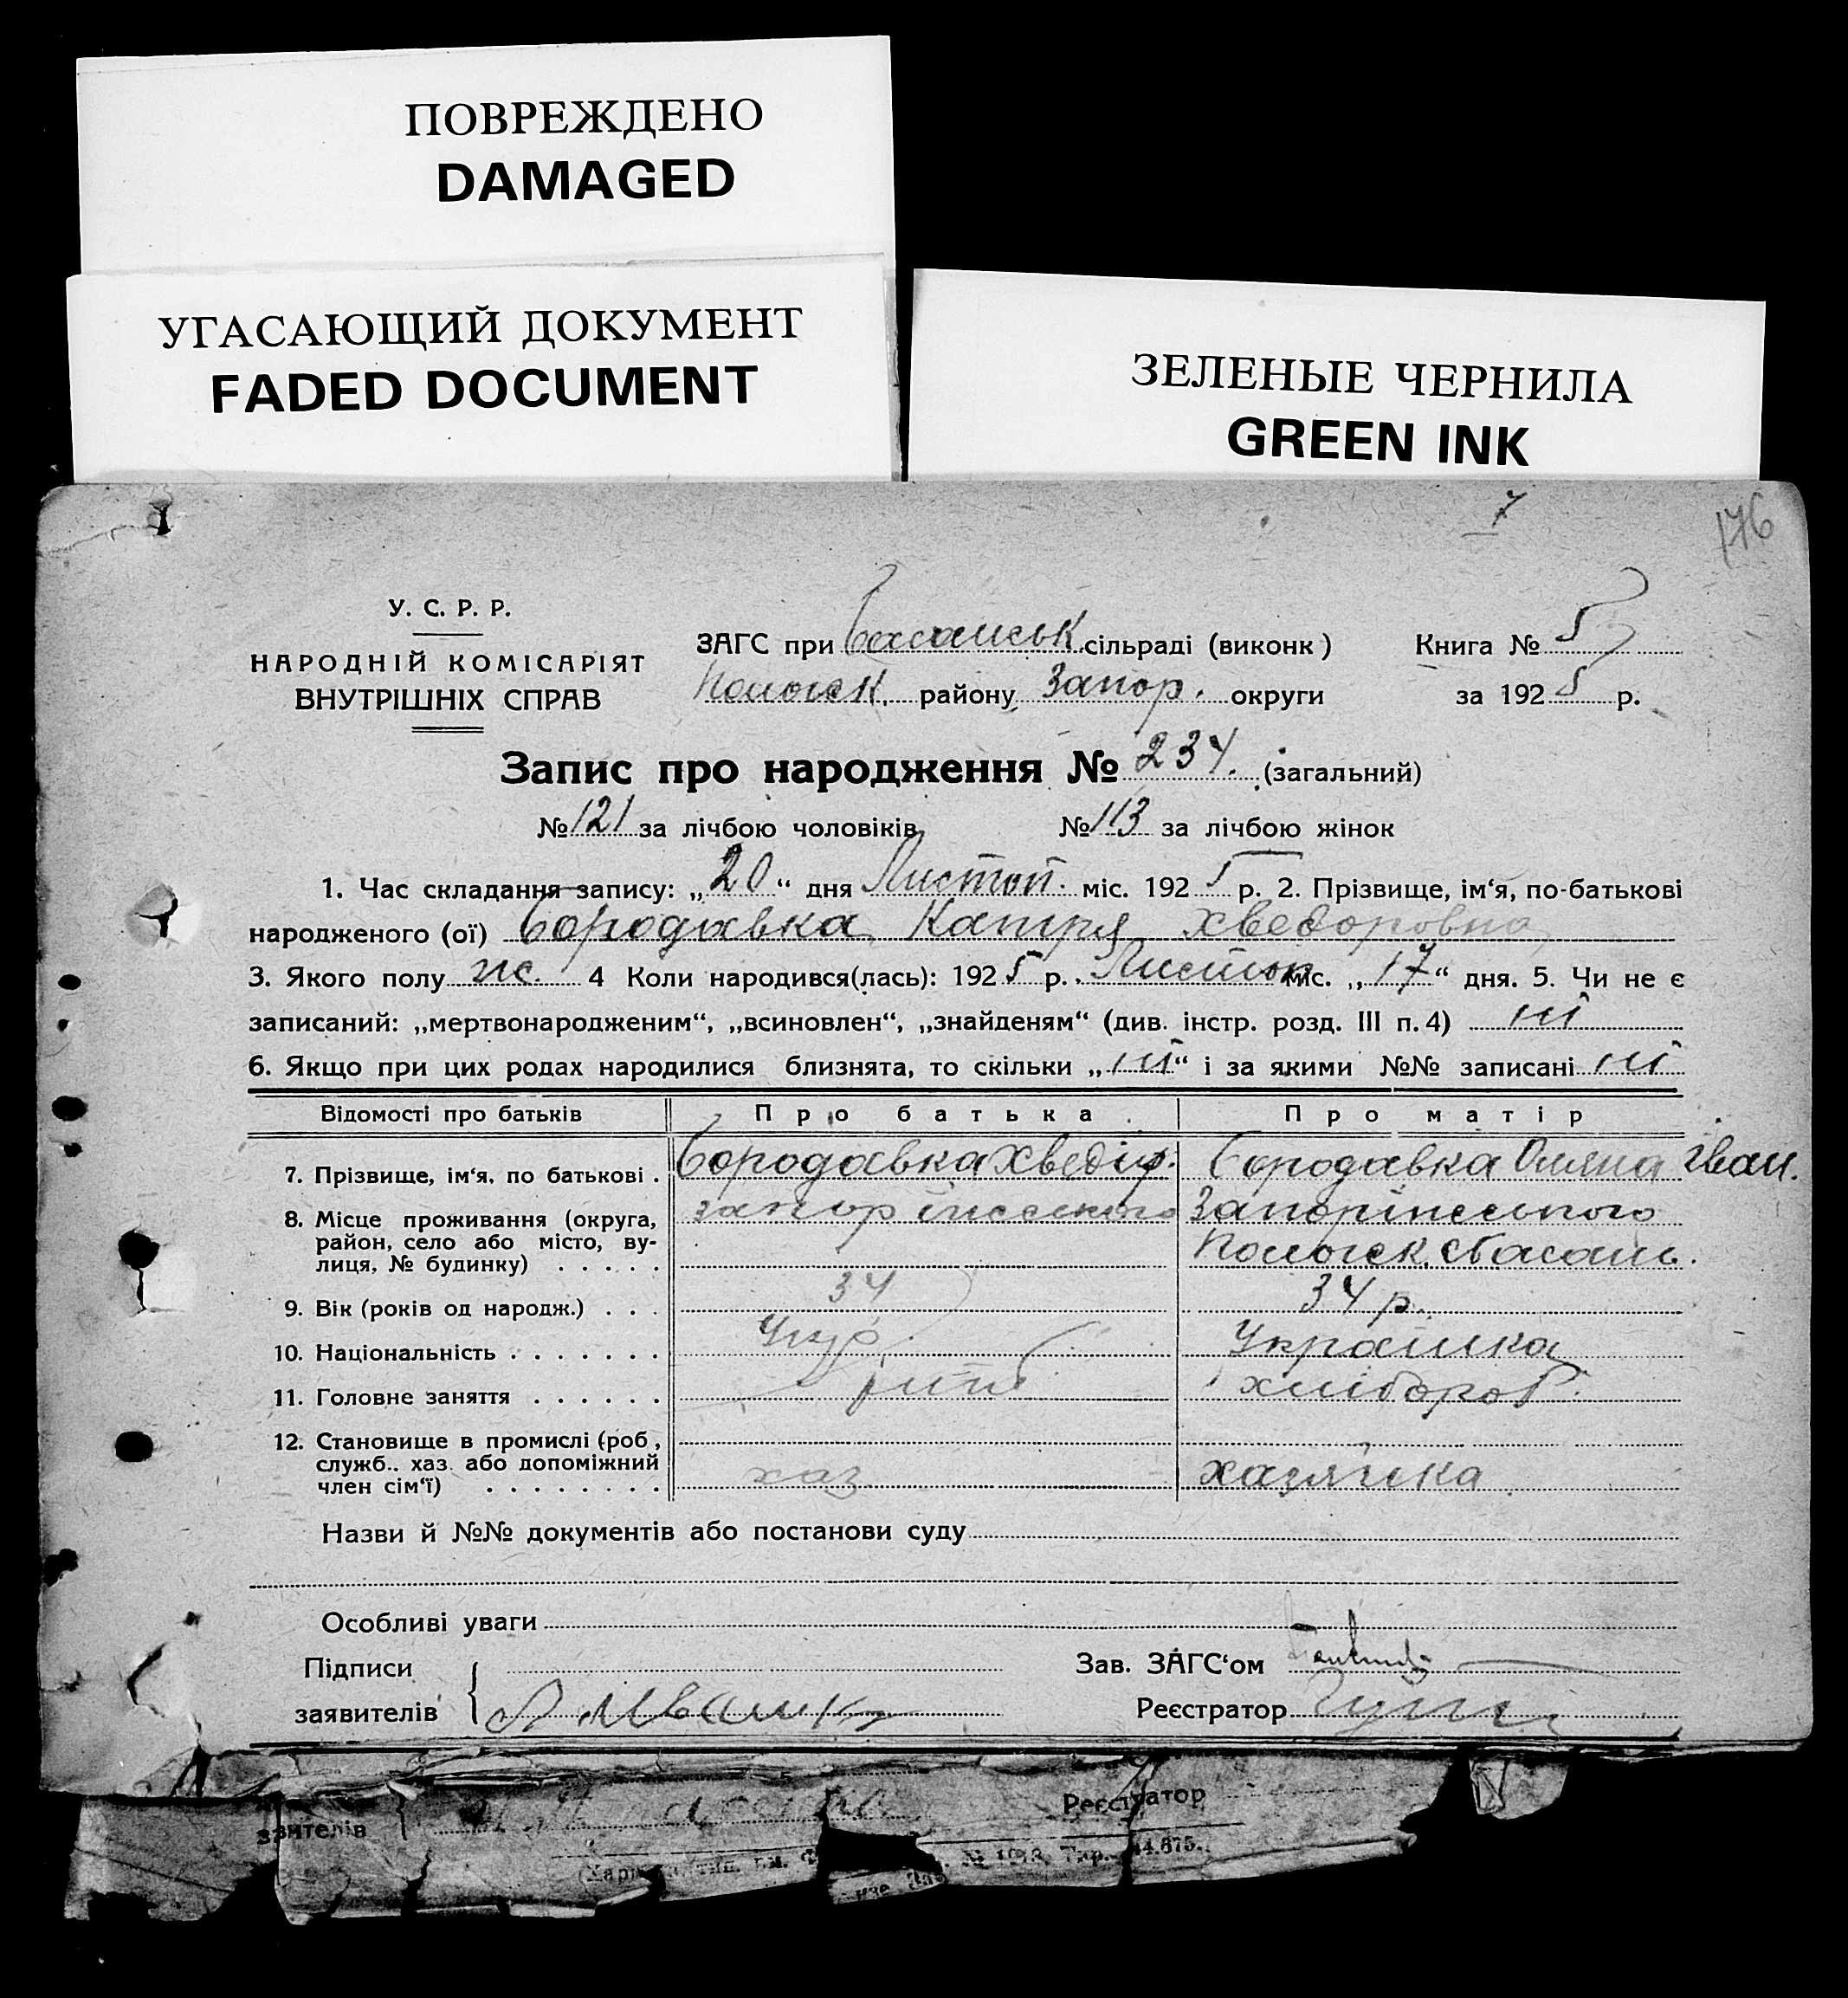 ПОВРЕЖДЕНО
DAMAGED
УГАСАЮЩИЙ ДОКУМЕНТ
FADED DOCUMENT
ЗЕЛЕНЫЕ ЧЕРНИЛА
GREEN INK
7
176
У. С. Р. Р.
НАРОДНІЙ КОМІСАРІЯТ
ВНУТРІШНІХ СПРАВ
ЗАГС при Басанськ сільраді (виконк)
Пологськ. району Запор. округи
Книга № 5
за 1925 р.
Запис про народження № 234. (загальний)
№ 121 за лічбою чоловіків № 113 за лічбою жінок
1. Час складання запису: „20“ дня Листоп. міс. 1925 р. 2. Прізвище, ім‘я, по-батькові
народженого (ої) Бородавка Катря Хведоровна
3. Якого полу ж. 4 Коли народився(лась): 1925 р. Листоп міс. „17“ дня. 5. Чи не є
записаний: „мертвонародженим“, „всиновлен“, „знайденям“ (див. інстр. розд. III п. 4) ні
6. Якщо при цих родах народилися близнята, то скільки „ні“ і за якими №№ записані ні
Відомості про батьків Про батька Про матір
7. Прізвище, ім‘я, по батькові . Бородавка Хведір. Бородавка Оляна Іван.
8. Місце проживання (округа, Запоріжського Запоріжського
район, село або місто, ву- Пологськ. с Басань.
лиця, № будинку) . . . . .
9. Вік (років од народж.) . . . 34 34 р.
10. Національність . . . . . . . Укр. Українка
11. Головне заняття . . . . . . хлібороб.
12. Становище в промислі (роб,
служб.. хаз. або допоміжний хаз хазяйка
член сім‘ї) . . . . . . . .
Назви й №№ документів або постанови суду
Особливі уваги
Підписи Зав. ЗАГС‘ом
заявителів Реєстратор
зявителів Реєстратор